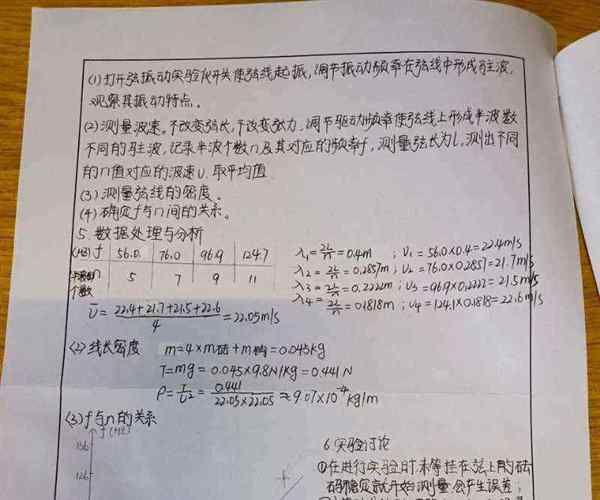 (1) 打开弦振动实验仪开关使弦线起振,调节振动频率在弦线中形成驻波,
观察其振动特点。
(2) 测量波速。不改变弦长,不改变张力,调节驱动频率使弦线上形成半波数
不同的驻波,记录半波个数n及其对应的频率f,测量弦长为l,测出不同
的n值对应的波速υ.取平均值
(3) 测量弦线的密度。
(4) 确定f与n间的关系。
5. 数据处理与分析
(Hz) f 56.0. 76.0 96.9 124.7
个数 5 7 9 11
λ₁=2L/n=0.4m ; υ₁=56.0×0.4=22.4m/s
λ₂=2L/n=0.2857m; υ₂=76.0×0.2857=21.7m/s
λ₃=2L/n=0.2222m; υ₃=96.9×0.2222=21.5m/s
λ₄=2L/n=0.1818m; υ₄=124.1×0.1818=22.6m/s
ῡ=(22.4+21.7+21.5+22.6)/4=22.05m/s
(2) 线长密度 m=4×m砝+m钩=0.045kg
T=mg=0.045×9.8N/kg=0.441N
ρ=T/υ²=0.441/(22.05×22.05)≈9.07×10⁻⁴kg/m
(3) f与n的关系
f(Hz)
156
126
6.实验讨论
①在进行实验时未等挂在弦上的砝
码稳定就开始测量会产生误差;